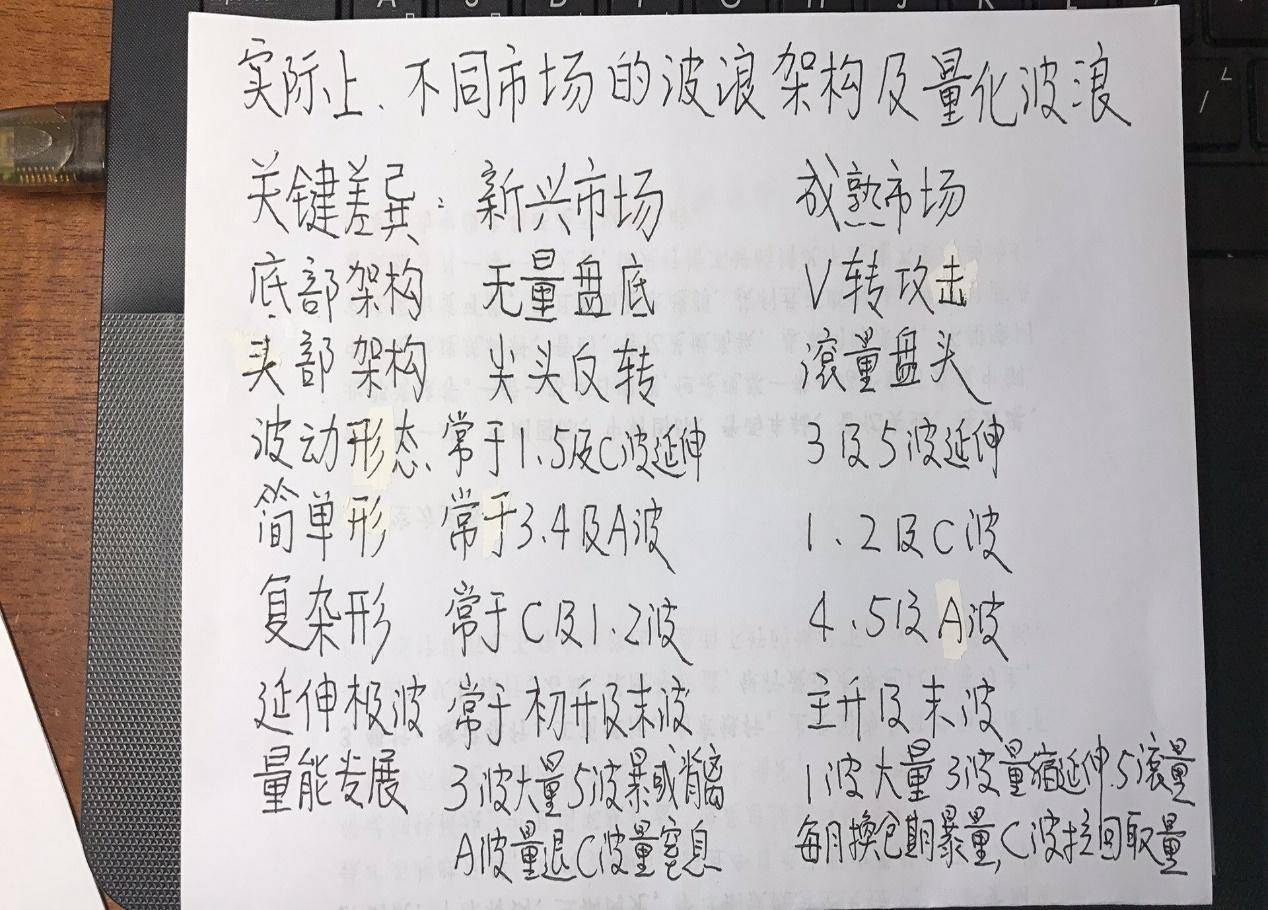 实际上、不同市场的波浪架构及量化波浪
关键差异: 新兴市场 成熟市场
底部架构 无量盘底 V转攻击
头部架构 尖头反转 滚量盘头
波动形态 常于1.5及C波延伸 3及5波延伸
简单形 常于3.4及A波 1.2及C波
复杂形 常于C及1.2波 4.5及A波
延伸极波 常于初升及末波 主升及末波
量能发展 3波大量5波暴或背离 1波大量3波量缩延伸.5滚量
A波量退C波量窒息 每月换仓期暴量,C波拉回取量